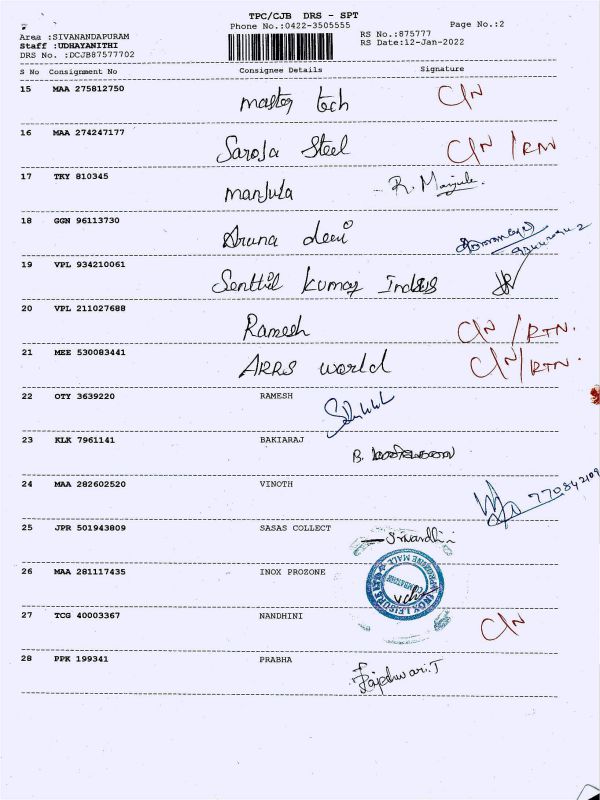 TPC/CJB DRS - SPT
Phone No.:0422-3505555 Page No.:2
Area :SIVANANDAPURAM RS No.:875777
Staff :UDHAYANITHI RS Date:12-Jan-2022
DRS No. :DCJB87577702
S No Consignment No Consignee Details Signature
15 MAA 275812750 master tech C/N
16 MAA 274247177 Saroja Steel C/N / RTN
17 TKY 810345 manjula R. Manjula.
18 GGN 96113730 Aruna devi
19 VPL 934210061 Senthil kumar
20 VPL 211027688 Ramesh C/N / RTN.
21 MEE 530083441 ARRS world C/N/RTN.
22 OTY 3639220 RAMESH
23 KLK 7961141 BAKIARAJ B.
24 MAA 282602520 VINOTH
25 JPR 501943809 SASAS COLLECT
26 MAA 281117435 INOX PROZONE INOX LEISURE PROZONE MALL
27 TCG 40003367 NANDHINI C/N
28 PPK 199341 PRABHA Rajeshwari.T